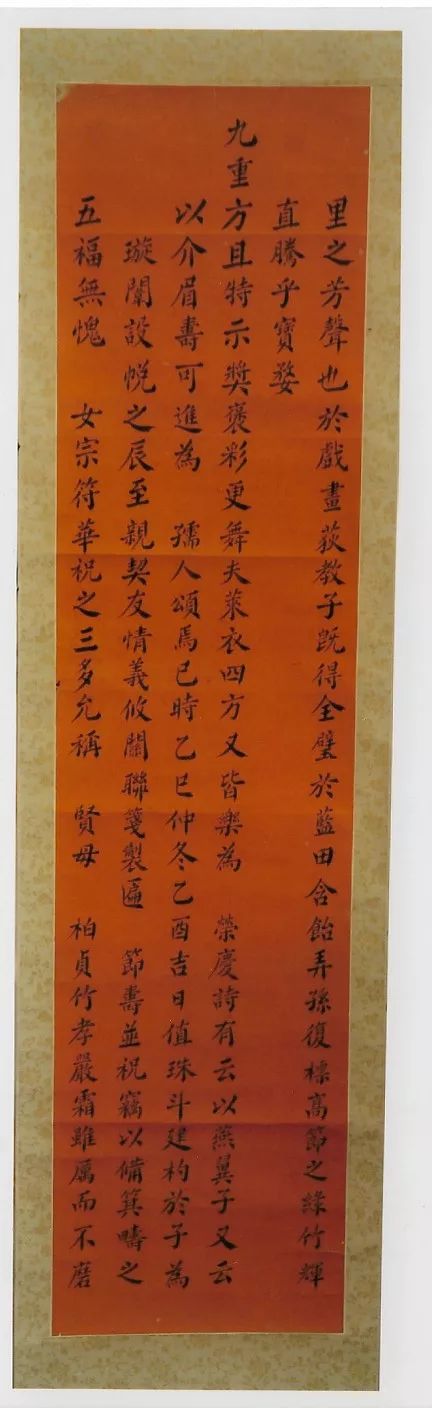 里之芳聲也於戲畫荻教子既得全璧於藍田含飴弄孫復標高節之綠竹輝
直騰乎寶婺
九重方且特示奬褒彩更舞夫萊衣四方又皆樂為 榮慶詩有云以燕翼子又云
以介眉壽可進為 孺人頌焉已時乙巳仲冬乙酉吉日值珠斗建杓於子為
璇闈設帨之辰至親契友情義攸關聯箋製匾 節壽並祝竊以備箕疇之
五福無愧 女宗符華祝之三多允稱 賢母 柏貞竹孝嚴霜雖厲而不磨